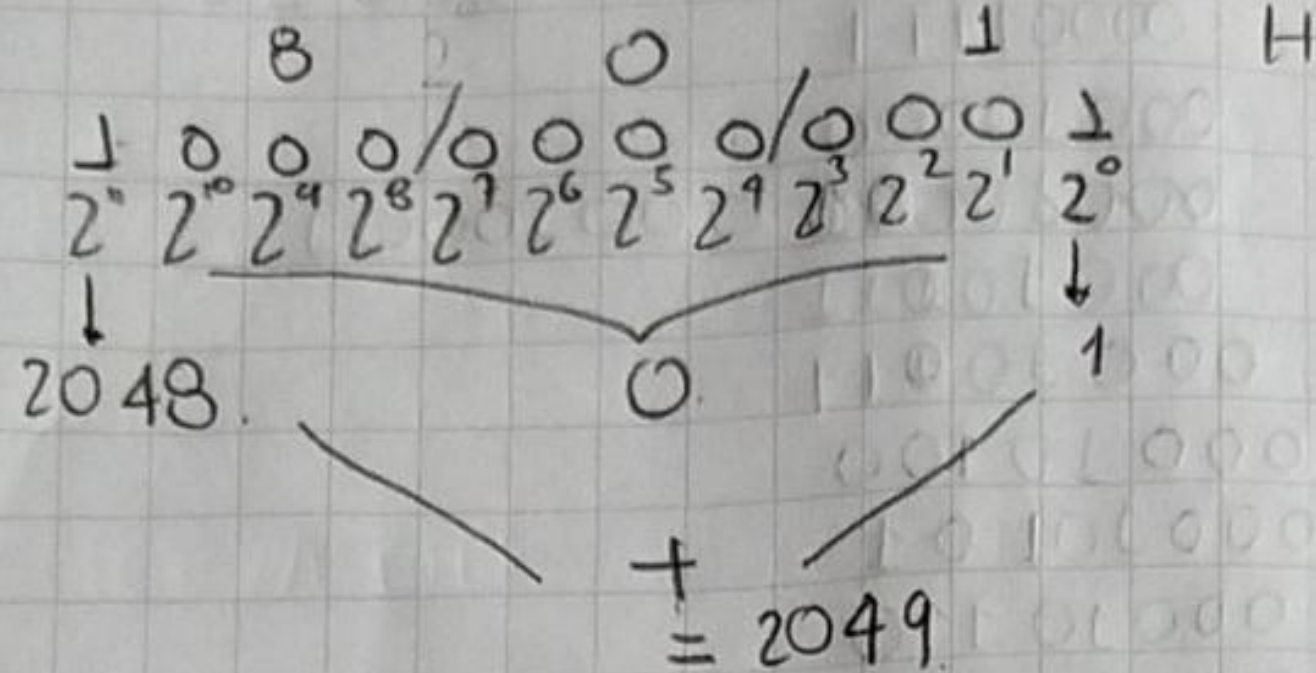 8 0 1 H
1 0 0 0 / 0 0 0 0 / 0 0 0 1
2¹¹ 2¹⁰ 2⁹ 2⁸ 2⁷ 2⁶ 2⁵ 2⁴ 2³ 2² 2¹ 2⁰
↓ ↓
2048. 0. 1
+
= 2049.